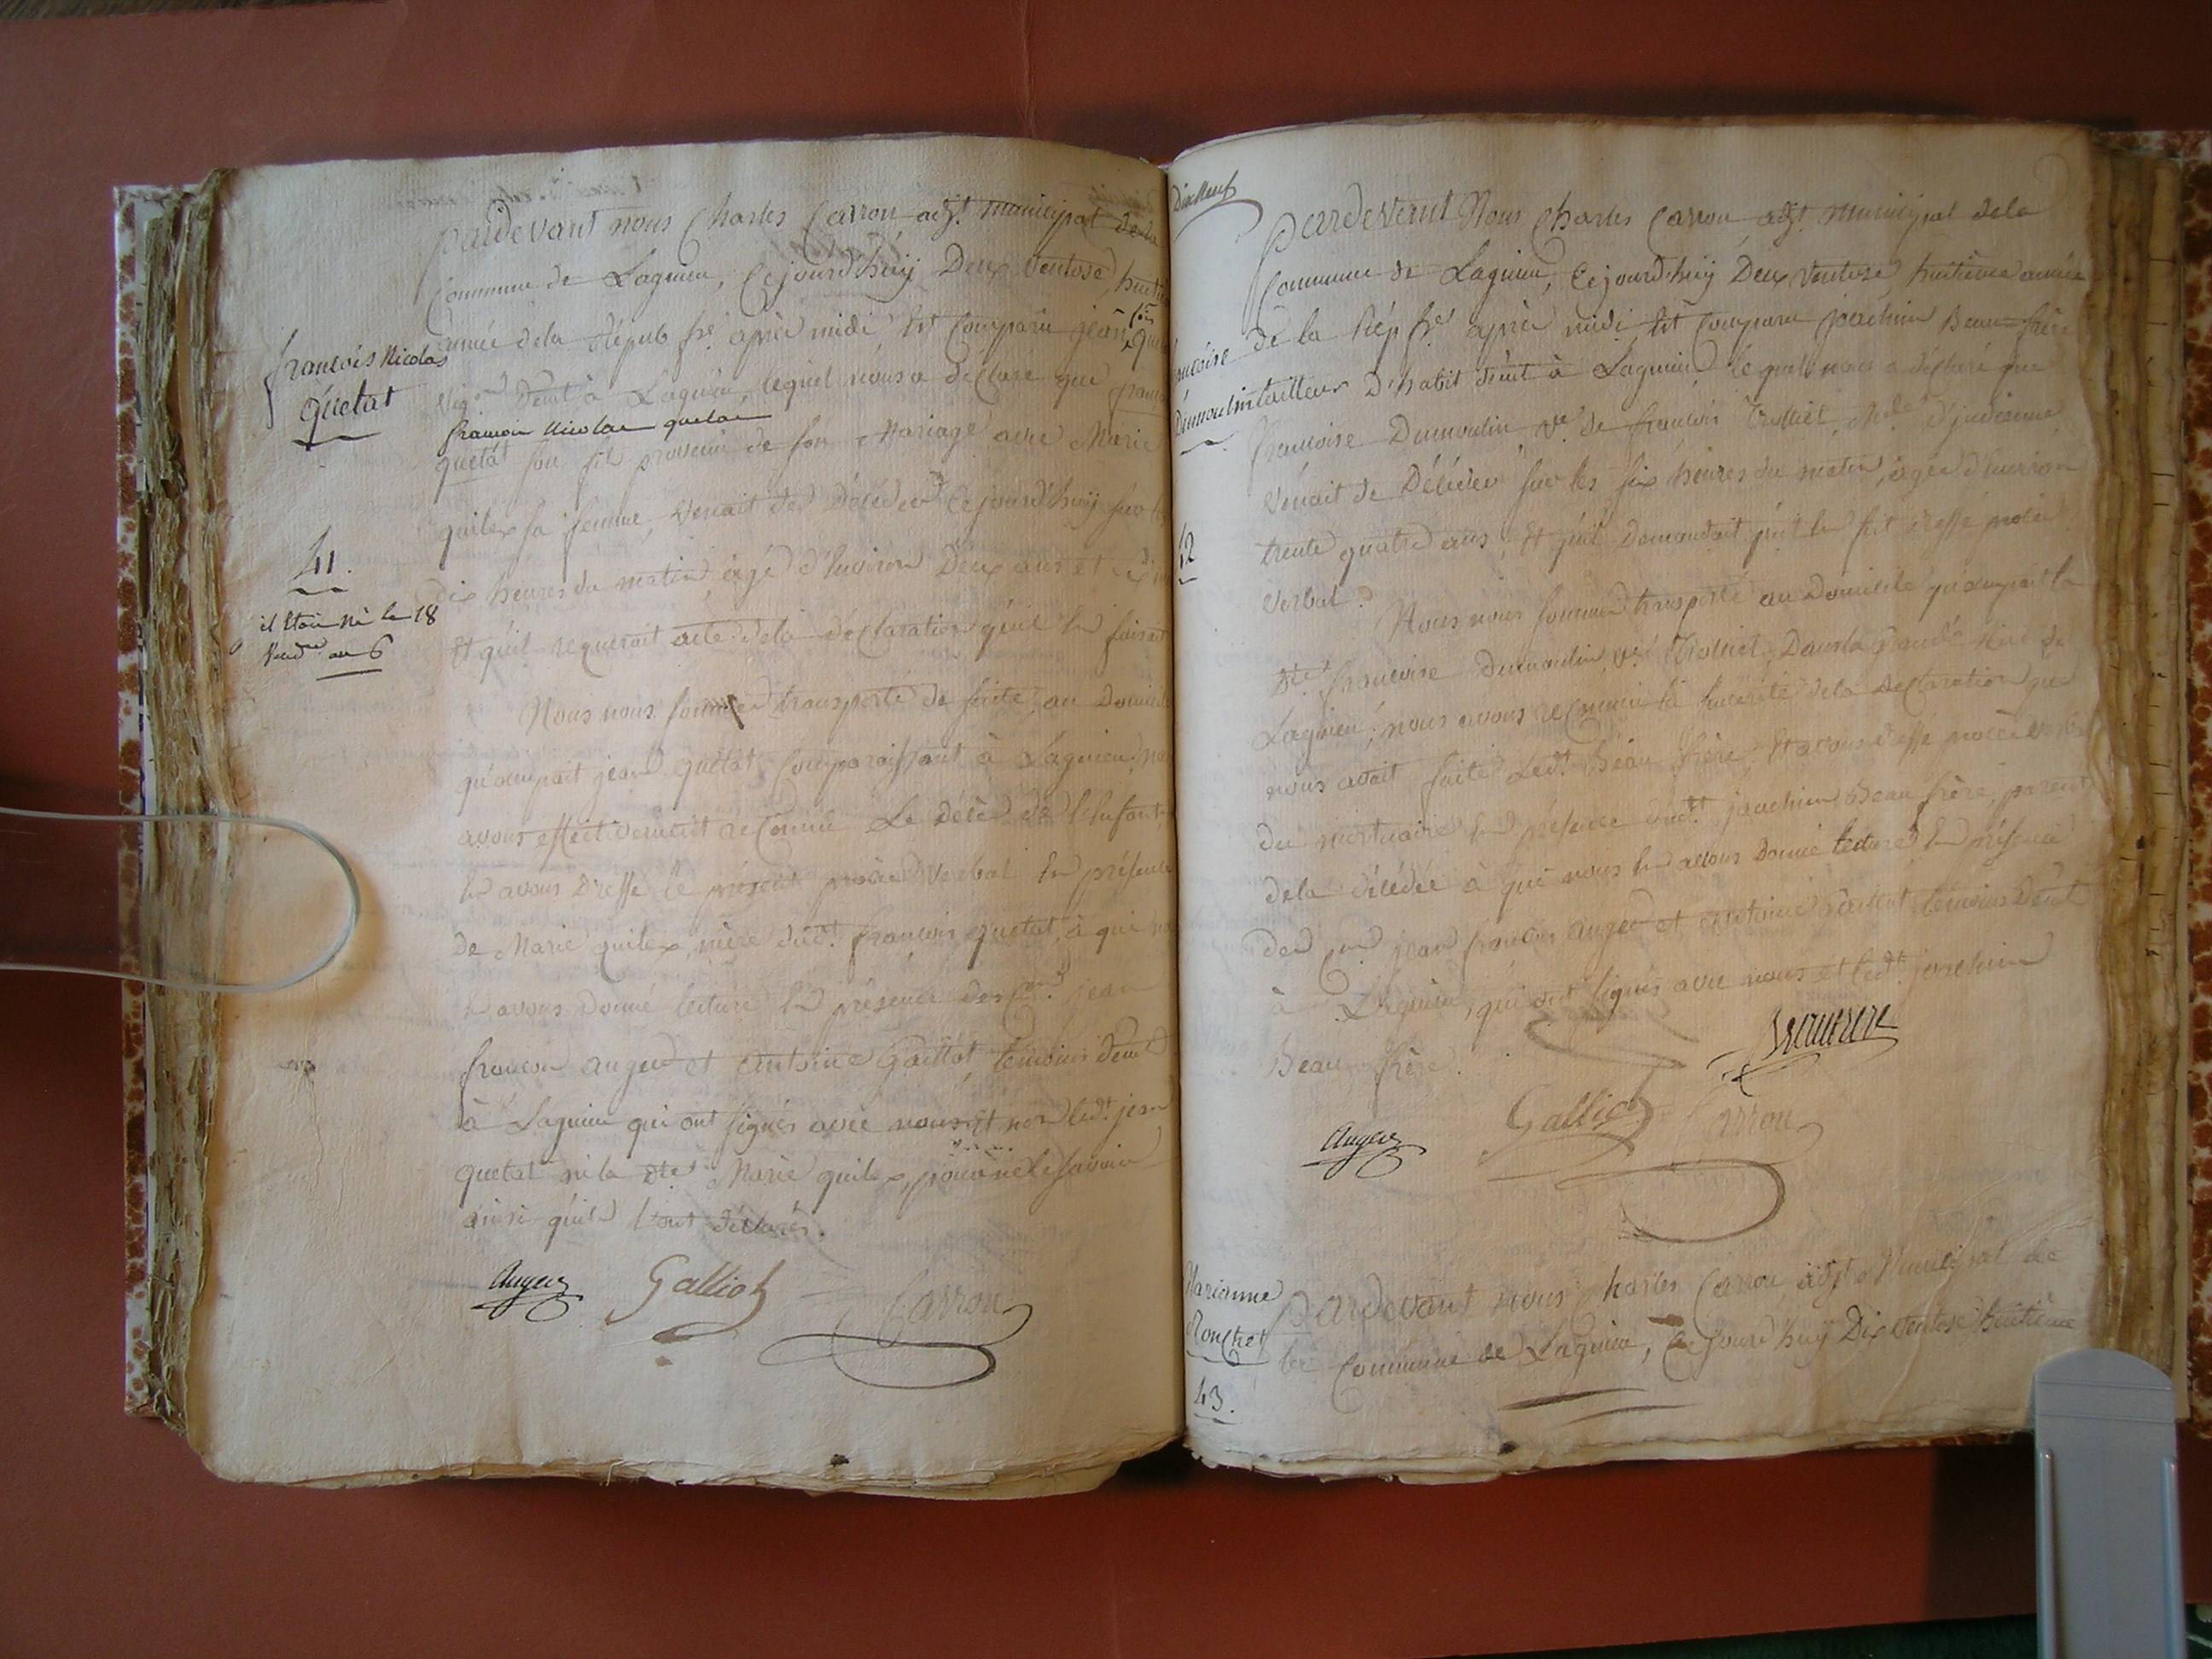 Pardevant nous Charles Carron adjt. municipal de la
Commune de Lagnieu, Cejourd'huy Deux Ventose, huitie
année dela Répub fre. après midi, Est Comparu jean
françois Nicolas
Quetat
Vigon. Demt à Lagnieu, lequel nous a déclaré que franç
françois Nicolas quetat
quetat son fils provenu de son Mariage avec Marie
quilex sa femme, Venait de Décéder Cejourd'huy sur les
41.
dix heures du matin, agé d'Environ Deux ans et
il Etoit Né le 18
Vendre an 6
Et qu'il requerait acte dela declaration qu'il En faisait
Nous nous sommes transporté de suite au Domicile
qu'occupait jean quetat Comparaissant à Lagnieu,
avons effectivement reconnu Le Décès de l'Enfant,
En avons Dressé le présent procès Verbal En présence
De Marie quilex, mère dudt. françois quetat, à qui
En avons Donné lecture En présence des Cens. jean
françois auger et Antoine Galliot, témoins demt.
à Lagnieu qui ont signés avec nous et non ledt. jean
quetat ni la dte. Marie quilex, pour ne le savoir
ainsi qu'ils l'ont déclarés.
Auger Galliot Carron
Dixneuf
Pardevant Nous Charles Carron adjt. municipal dela
Commune de Lagnieu, Cejourd'huy Deux Ventose, huitième année
de la Rép fre. après midi Est Comparu joachim Beau-frère
Dumoulin
tailleur D'habit demt à Lagnieu lequel nous a déclaré que
françoise Dumoulin, ve. de françois Trolliet, Mde. D'indienne
Venait de Décéder sur les six heures du matin, agée d'Environ
42
trente quatre ans, Et qu'il Demandait qu'il En fut dressé procès
Verbal.
Nous nous sommes transporté au Domicile qu'occupait la
dte. françoise Dumoulin, ve. Trolliet, Dans la grande Rue de
Lagnieu; nous avons reconnu la sincérité dela Declaration que
nous avait faite Ledt. Beau frère, Et avons dressé procès verbal
du mortuaire En présence dudt. joachim Beau frère, parent
dela décédée à qui nous En avons Donné lecture En présence
des Cens. jean françois auger et antoine Galliot témoins Demt
à Lagnieu, qui ont signés avec nous et ledt. joachim
Beau frère.
Beaufrere
Auger Galliot Carron
Marianne
Ronchet
43.
Pardevant nous Charles Carron, adjt. Municipal de
la Commune de Lagnieu, Cejourd'huy Dix Ventose huitième